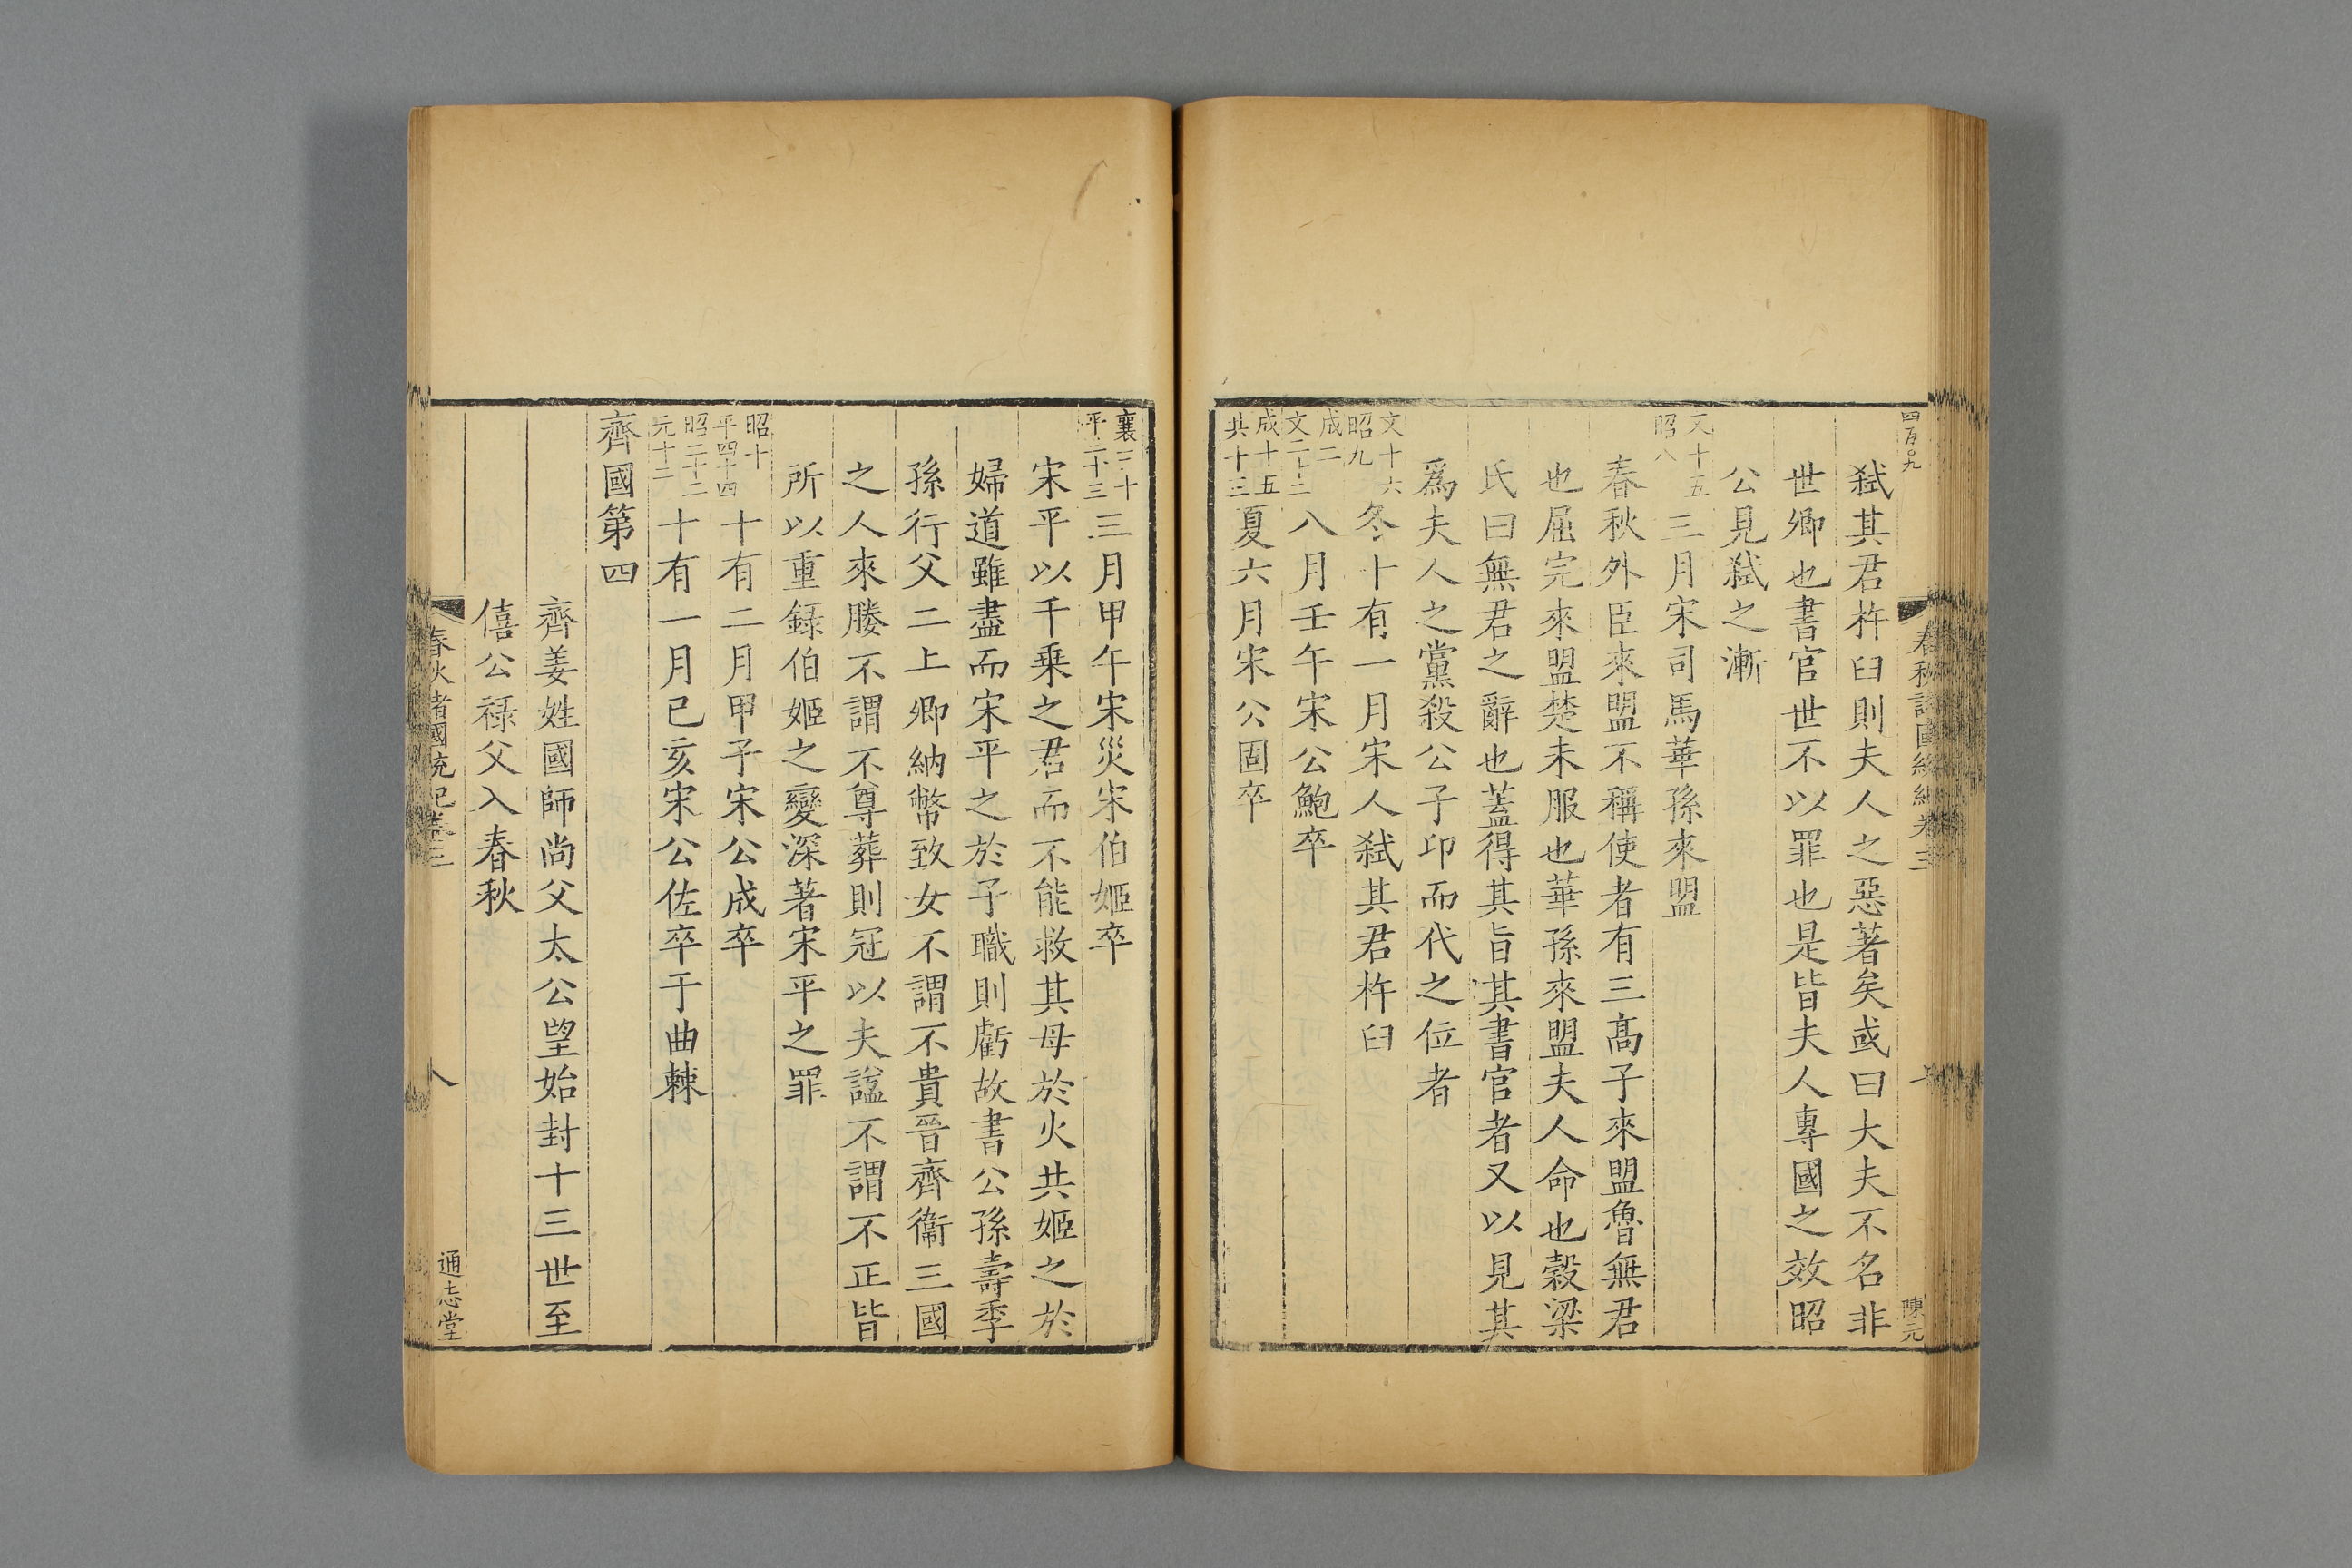 四百〇九
陳元
弑其君杵臼則夫人之惡著矣或曰大夫不名非
世卿也書官世不以罪也是皆夫人專國之效昭
公見弑之漸
文十五
昭八
三月宋司馬華孫來盟
春秋外臣來盟不稱使者有三高子來盟魯無君
也屈完來盟楚未服也華孫來盟夫人命也穀梁
氏曰無君之辭也蓋得其旨其書官者又以見其
爲夫人之黨殺公子卬而代之位者
文十六
昭九
冬十有一月宋人弑其君杵臼
成二
文二十二
八月壬午宋公鮑卒
成十五
共十三
夏六月宋公固卒
襄三十
平三十三
三月甲午宋災宋伯姬卒
宋平以千乗之君而不能救其母於火共姬之於
婦道雖盡而宋平之於子職則虧故書公孫壽季
孫行父二上卿納幣致女不謂不貴晉齊衞三國
之人來媵不謂不尊葬則冠以夫諡不謂不正皆
所以重録伯姬之變深著宋平之罪
昭十
平四十四
十有二月甲子宋公成卒
昭二十二
元十二
十有一月已亥宋公佐卒于曲棘
齊國第四
齊姜姓國師尚父太公望始封十三世至
僖公禄父入春秋
春秋諸國統紀卷三
八
通志堂